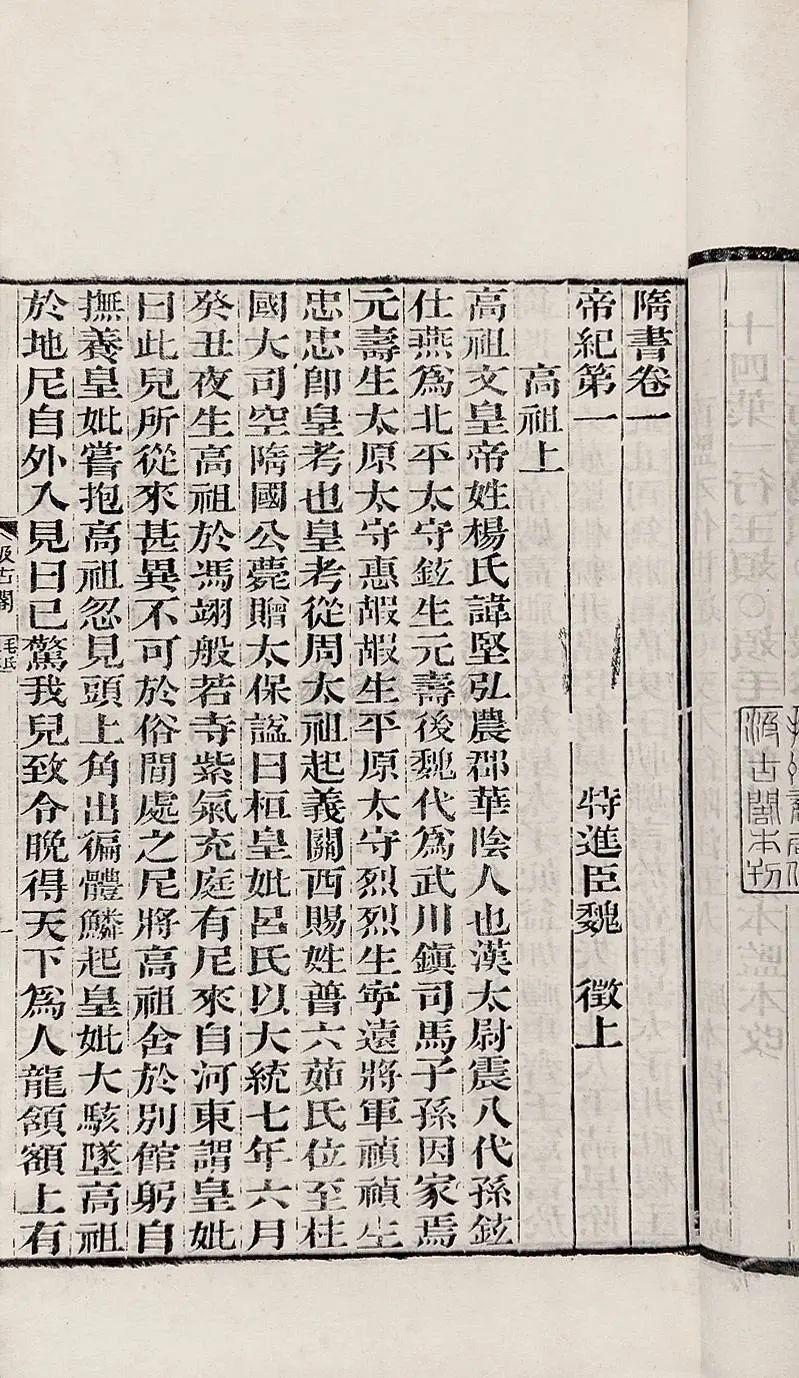 隋書卷一
帝紀第一　特進臣魏　徵上
高祖上
高祖文皇帝姓楊氏諱堅弘農郡華陰人也漢太尉震八代孫鉉
仕燕爲北平太守鉉生元壽後魏代爲武川鎭司馬子孫因家焉
元壽生太原太守惠嘏嘏生平原太守烈烈生寧遠將軍禎禎生
忠忠卽皇考也皇考從周太祖起義關西賜姓普六茹氏位至柱
國大司空隋國公薨贈太保諡曰桓皇妣呂氏以大統七年六月
癸丑夜生高祖於馮翊般若寺紫氣充庭有尼來自河東謂皇妣
曰此兒所從來甚異不可於俗間處之尼將高祖舍於別館躬自
撫養皇妣嘗抱高祖忽見頭上角出徧體鱗起皇妣大駭墜高祖
於地尼自外入見曰已驚我兒致令晚得天下爲人龍頷額上有
汲古閣
毛氏
汲古閣本刋